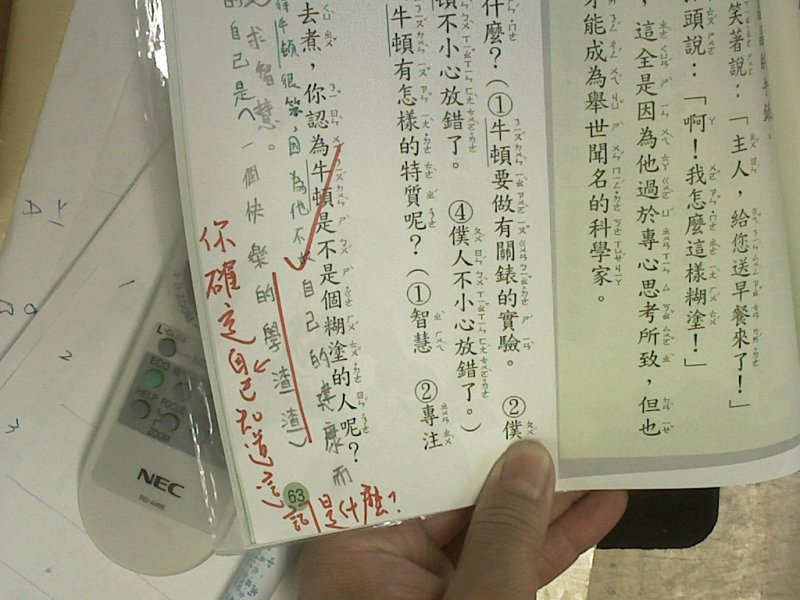 笑著說：「主人，給您送早餐來了！」
頭說：「啊！我怎麼這樣糊塗！」
，這全是因為他過於專心思考所致，但也
才能成為舉世聞名的科學家。
什麼？（①牛頓要做有關錶的實驗。②僕
頓不小心放錯了。④僕人不小心放錯了。）
牛頓有怎樣的特質呢？（①智慧 ②專注
去煮，你認為牛頓是不是個糊塗的人呢？
牛頓很笨，因為他不
自己的健康而
求智慧。
的自己是
一個快樂的學渣渣）
你確定自己知道這
詞是什麼？
63
L-CLICK
ECO
HELP
FOCUS
ZOOM
NEC